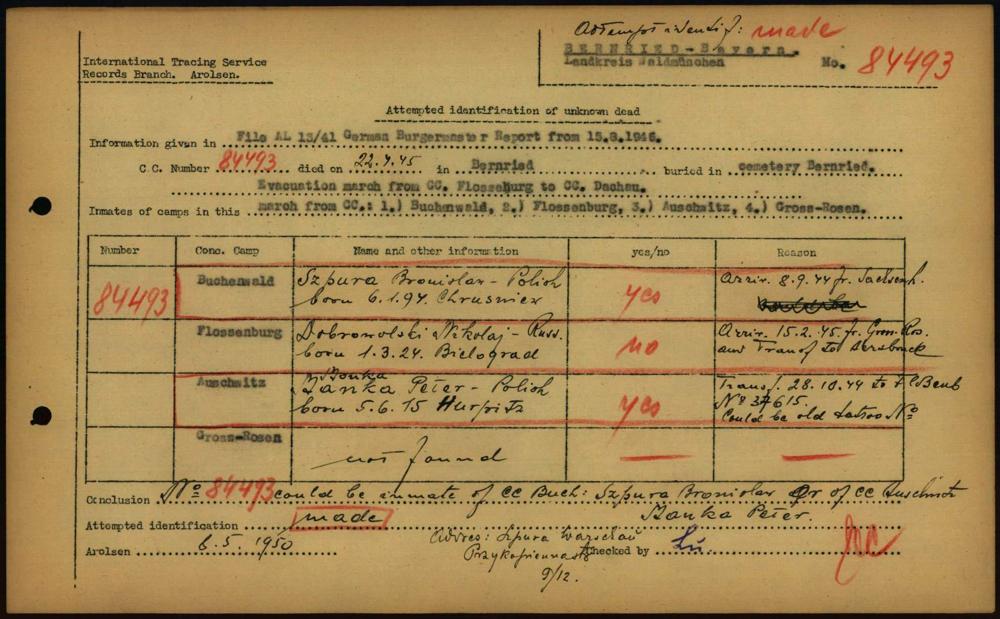 Attempt identif: made
BERNRIED-Bayern.
Landkreis Waldmünchen
No. 84493
International Tracing Service
Records Branch. Arolsen.
Attempted identification of unknown dead
Information given in File AL 13/41 German Burgermaster Report from 15.8.1946.
C.C. Number 84493 died on 22.4.45 in Bernried buried in cemetery Bernried.
Evacuation march from CC. Flossenburg to CC. Dachau.
Inmates of camps in this march from CC.: 1.) Buchenwald, 2.) Flossenburg, 3.) Auschwitz, 4.) Gross-Rosen.
Number Conc. Camp Name and other information yes/no Reason
84493
Buchenwald Szpura Bronislav - Polish yes Arriv. 8.9.44 fr. Sachsenh.
born 6.1.94.
Flossenburg Dobrowolski Nikolaj - Russ. no Arriv. 15.2.45. fr. Gross-Ros.
born 1.3.24. Bielograd and Transf to Hersbruck
Auschwitz Bonka
Janka Peter - Polish yes Transf. 28.10.44 to
born 5.6.15 No 37615.
Could be old tatoo No
Gross-Rosen not found — —
Conclusion No 84493 could be inmate of CC Buch: Szpura Bronislav Or of CC Auschwitz
Peter.
Attempted identification made
Arolsen 6.5.1950
Addres: Szpura Warschau
Checked by Lu.
9/12.